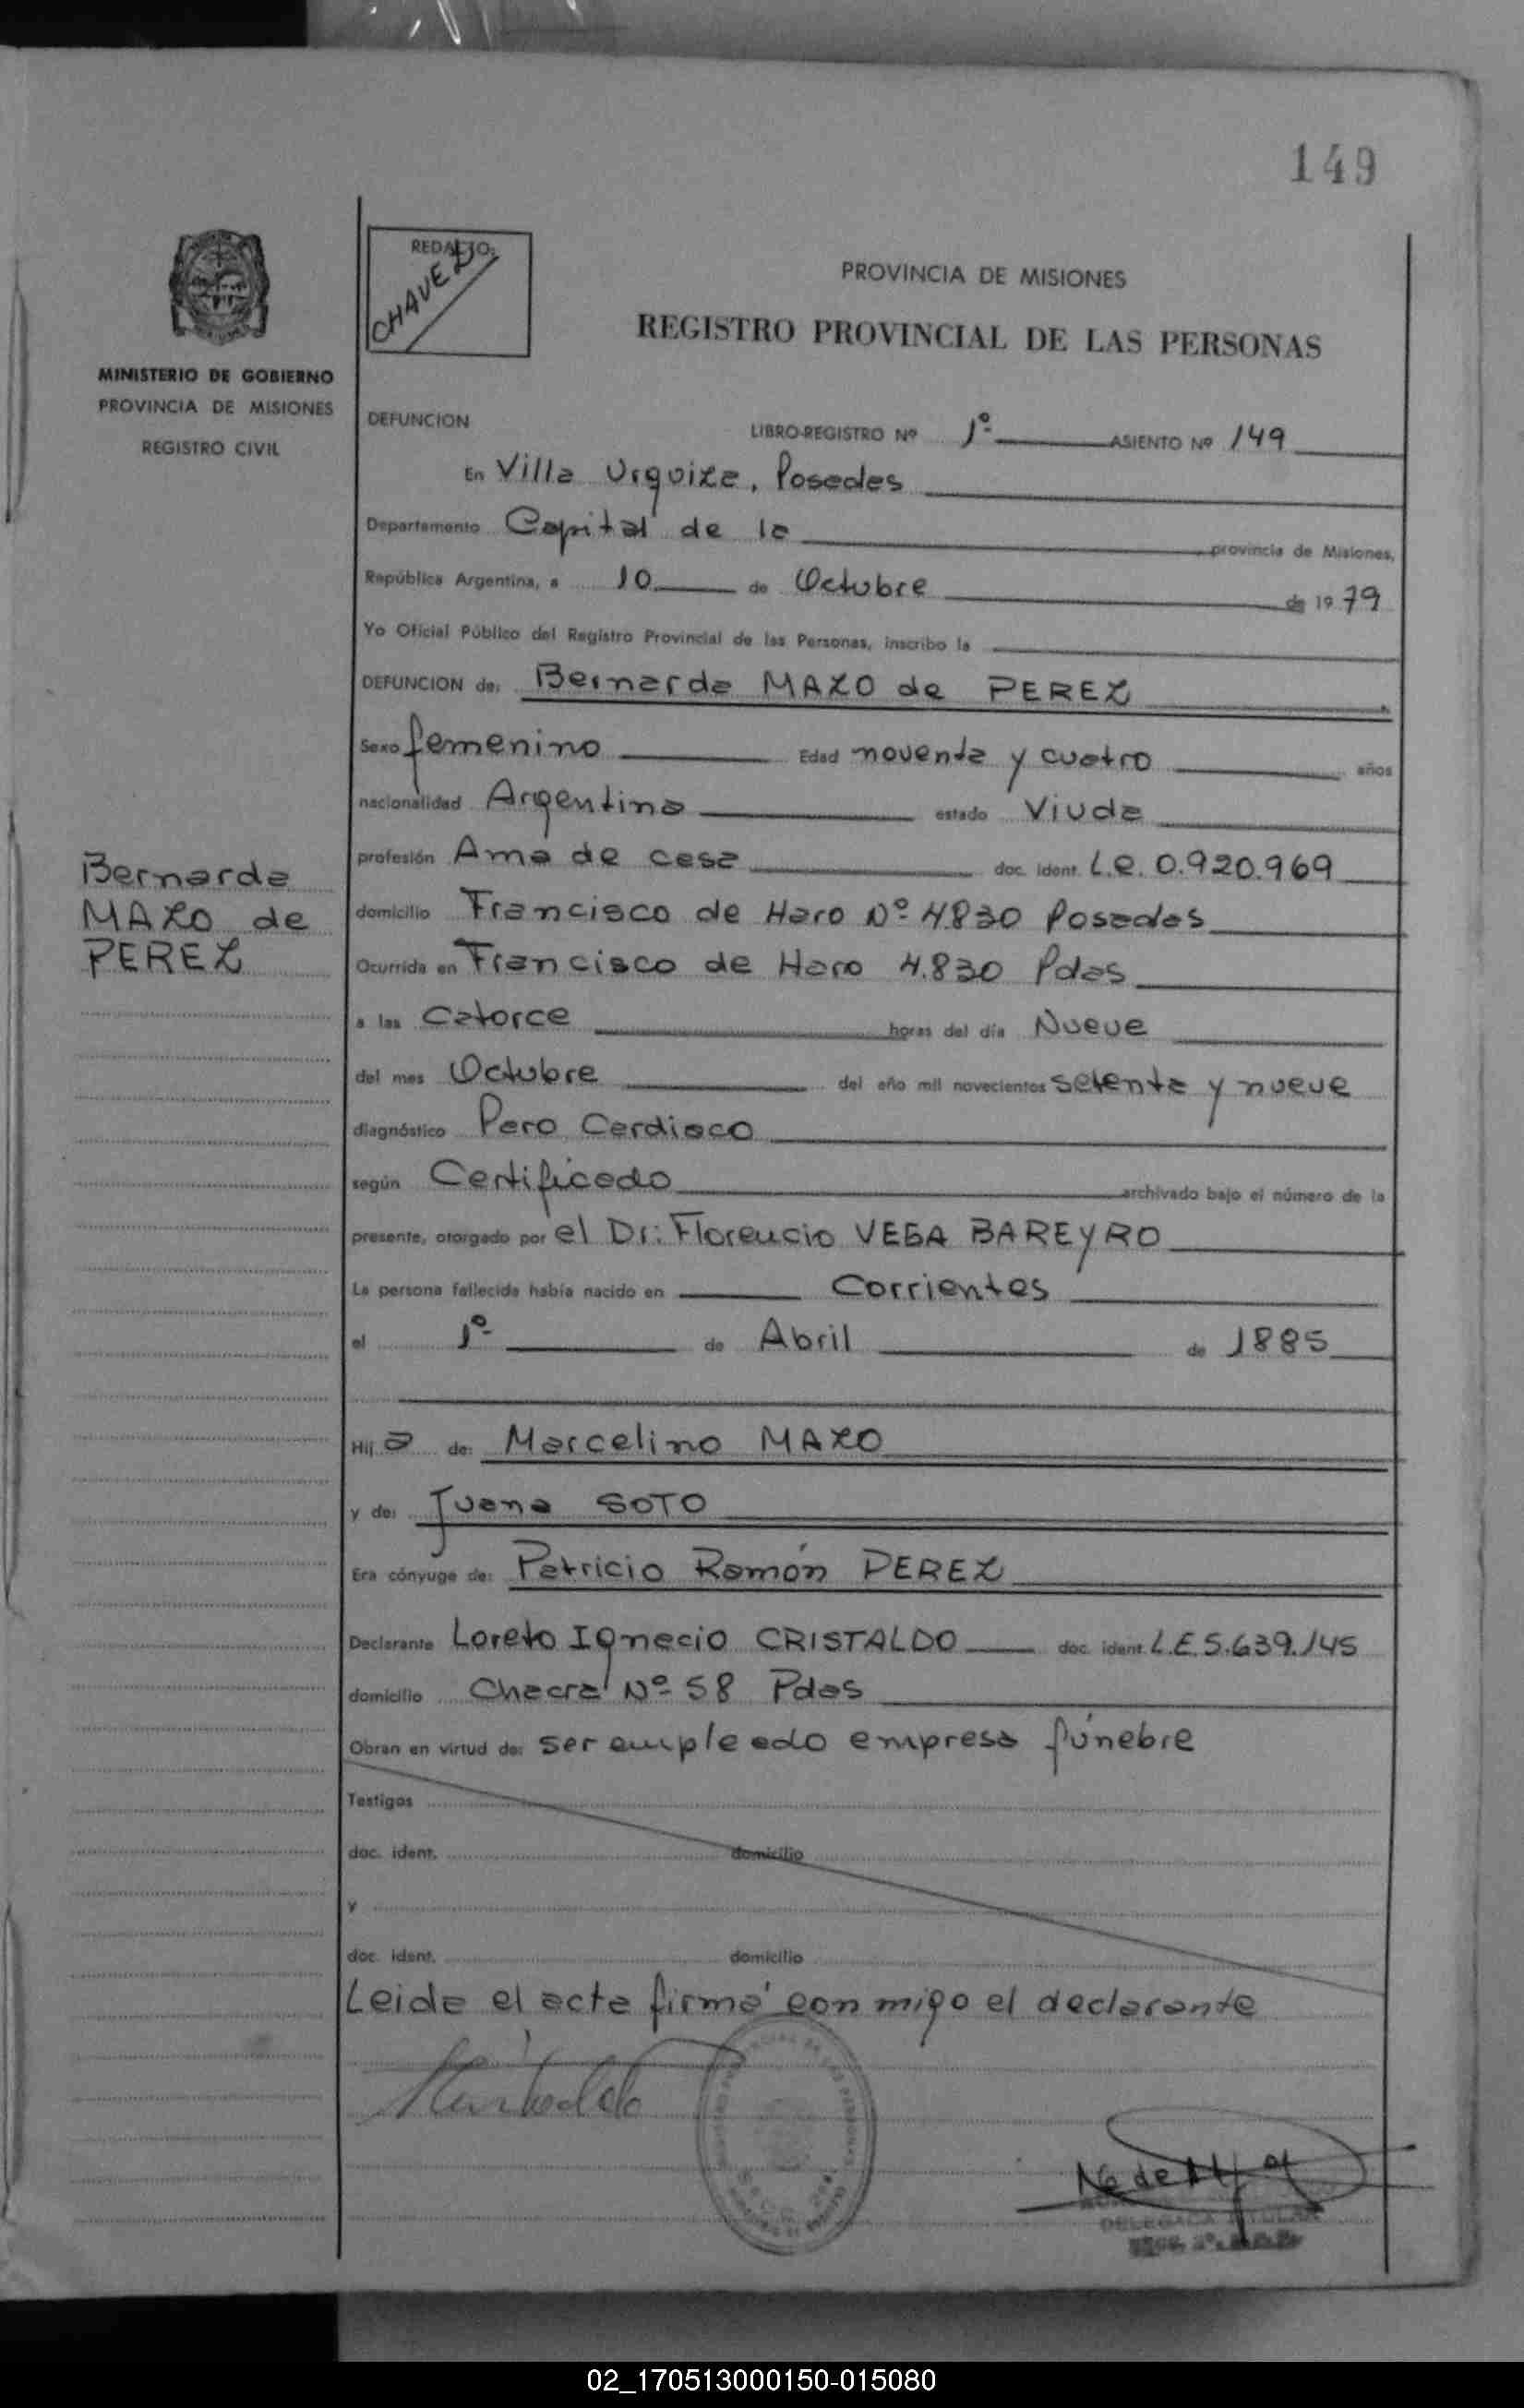 149
REDACTO:
CHAVEZ
PROVINCIA DE MISIONES
REGISTRO PROVINCIAL DE LAS PERSONAS
MINISTERIO DE GOBIERNO
PROVINCIA DE MISIONES
REGISTRO CIVIL
DEFUNCION
LIBRO-REGISTRO Nº 1º ASIENTO Nº 149
En Villa Urquiza, Posadas
Departamento Capital de la provincia de Misiones,
República Argentina, a 10 de Octubre de 19 79
Yo Oficial Público del Registro Provincial de las Personas, inscribo la
DEFUNCION de: Bernarda MAZO de PEREZ
Sexo femenino Edad noventa y cuatro años
nacionalidad Argentina estado Viuda
profesión Ama de casa doc. ident. L.C. 0.920.969
Bernarda
MAZO de
PEREZ
domicilio Francisco de Haro Nº 4830 Posadas
Ocurrida en Francisco de Haro 4.830 Pdas
a las Catorce horas del día Nueve
del mes Octubre del año mil novecientos setenta y nueve
diagnóstico Paro Cardiaco
según Certificado archivado bajo el número de la
presente, otorgado por el Dr: Florencio VEGA BAREYRO
La persona fallecida había nacido en Corrientes
el 1º de Abril de 1885
Hij a de: Marcelino MAZO
y de: Juana SOTO
Era cónyuge de: Patricio Ramón PEREZ
Declarante Loreto Ignacio CRISTALDO doc. ident. L.E. 5.639.145
domicilio Chacra Nº 58 Pdas
Obran en virtud de: ser empleado empresa fúnebre
Testigos
doc. ident. domicilio
y
doc. ident. domicilio
Leida el acta firma conmigo el declarante
DELEGADA TITULAR
02_170513000150-015080